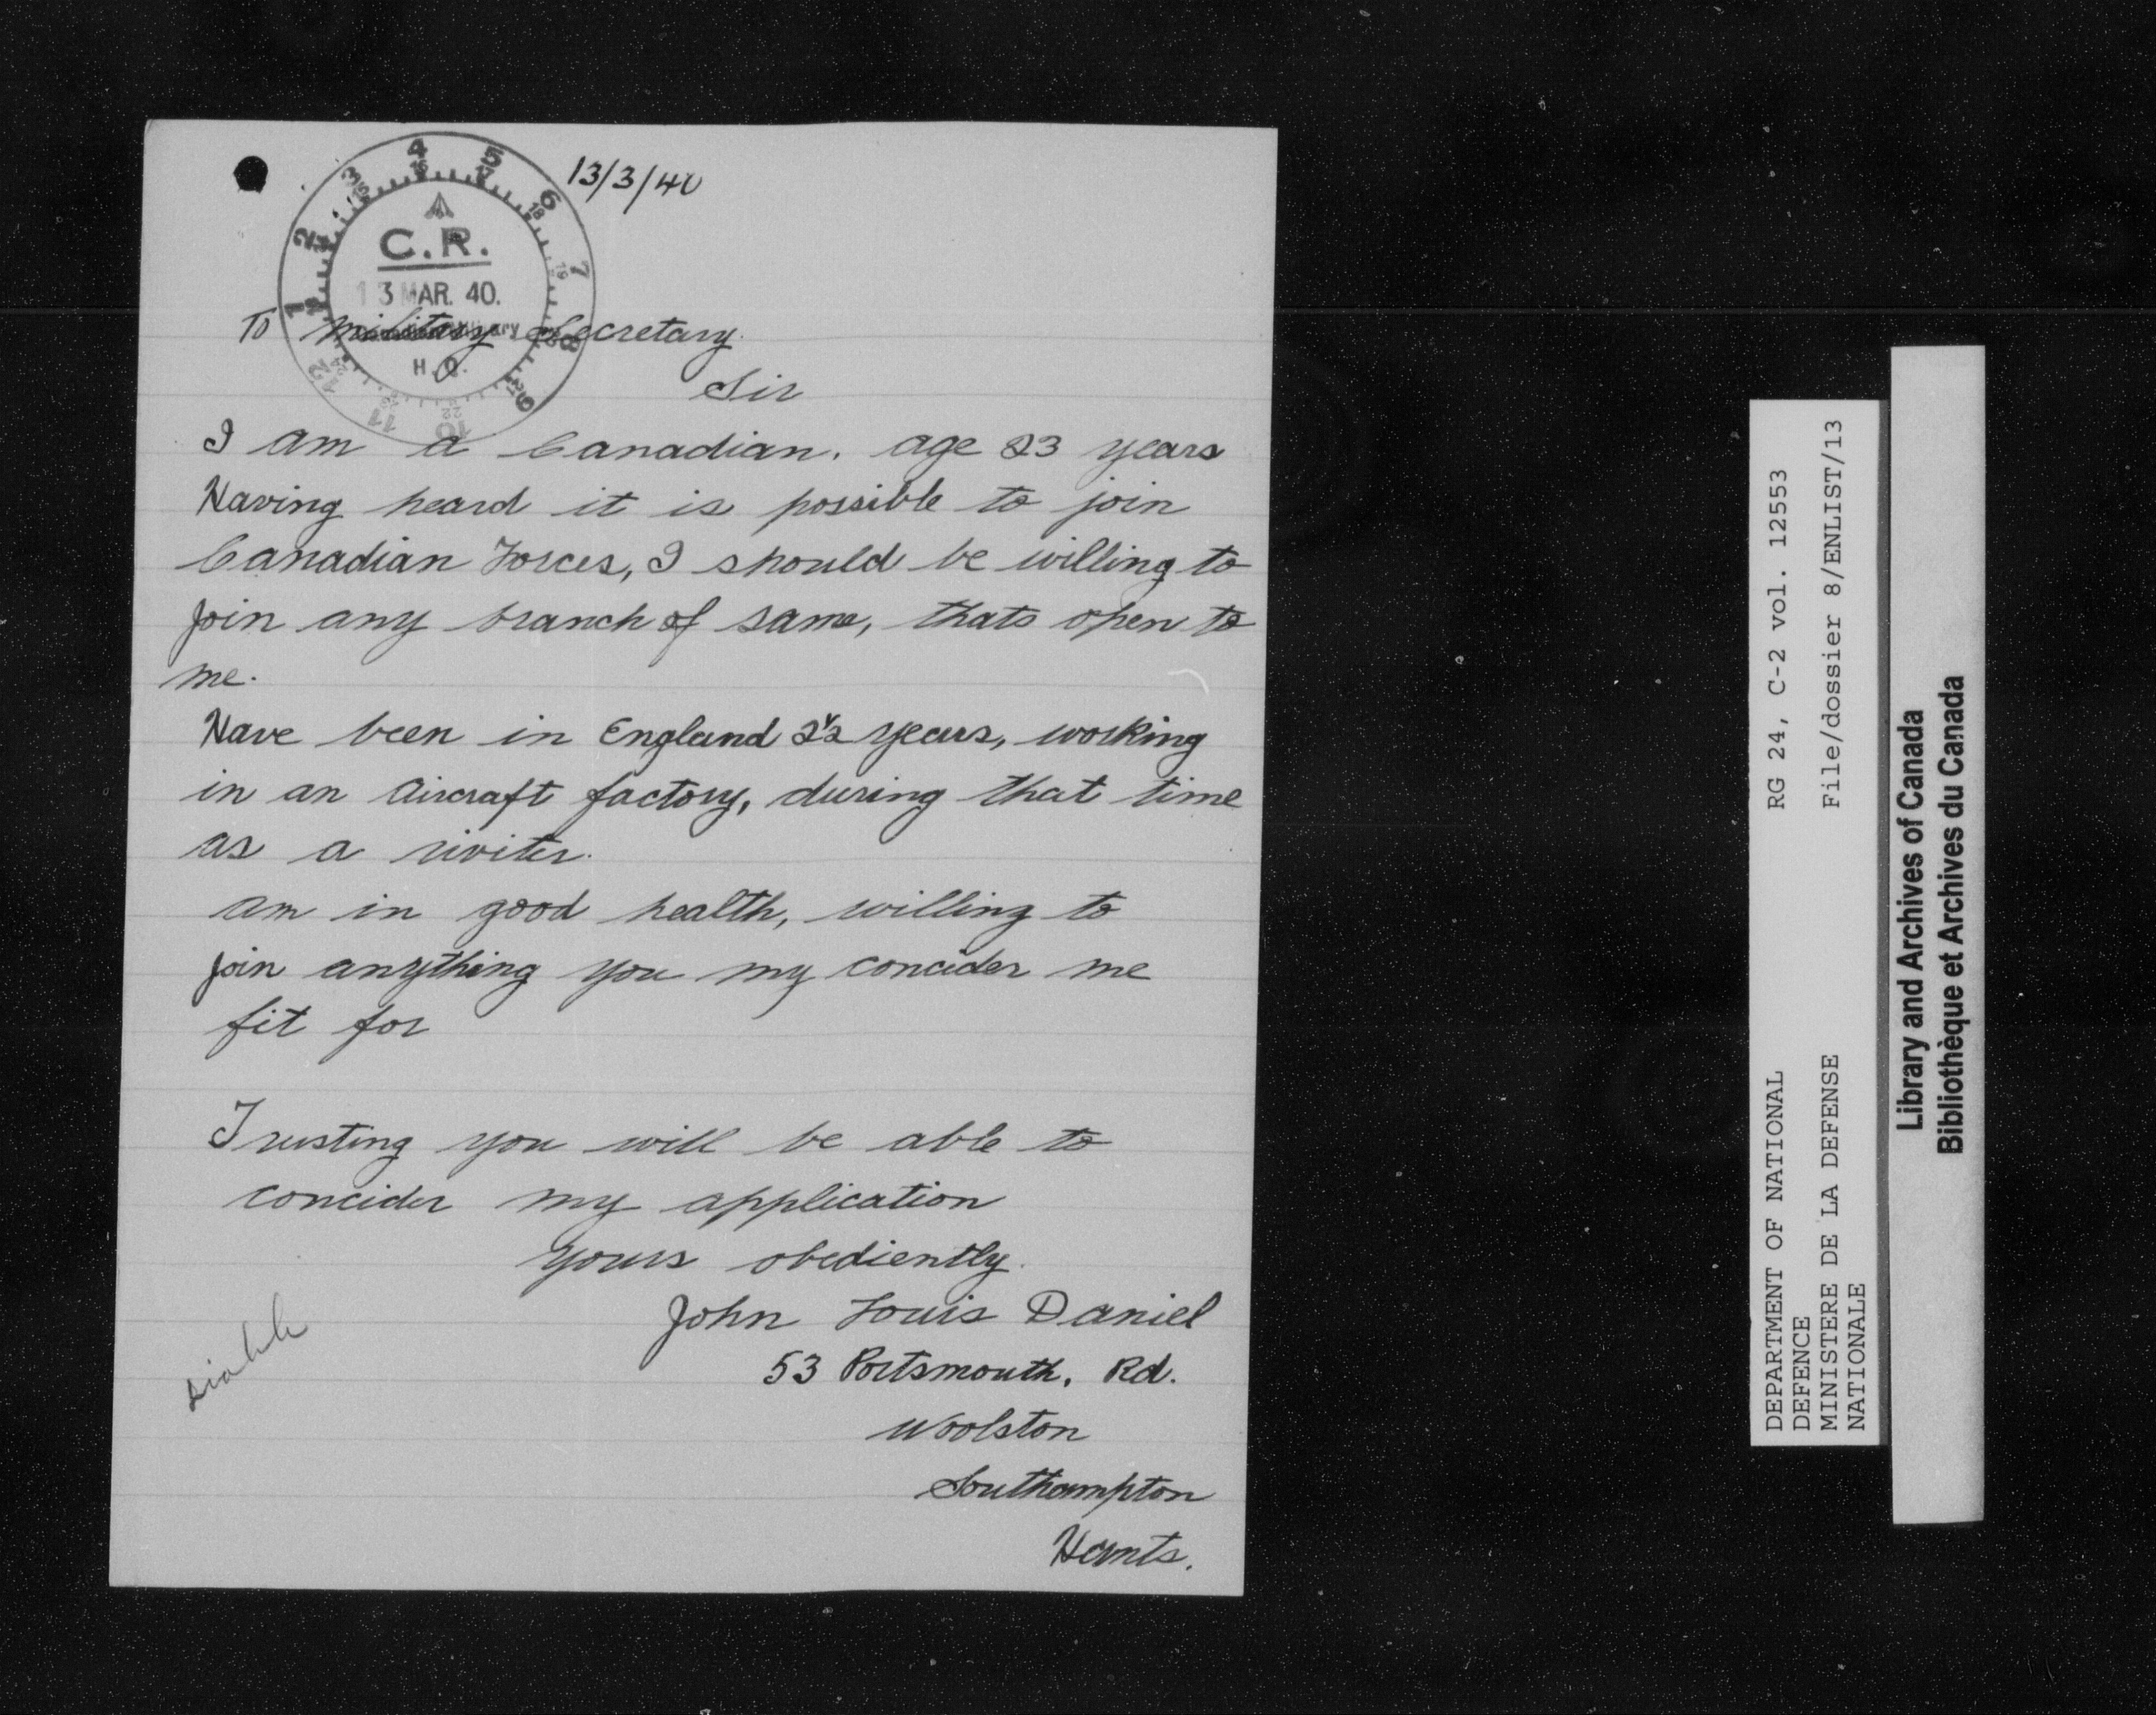 13/3/40
4 5 6 7 8 9 10 11 12 1 2 3
C.R.
13 MAR. 40.
H.Q.
To Military Secretary.
Sir
I am a Canadian. age 23 years
Having heard it is possible to join
Canadian Forces, I should be willing to
join any branch of same, thats open to
me.
Have been in England 2½ years, working
in an aircraft factory, during that time
as a riviter.
am in good health, willing to
join anything you my concider me
fit for
Trusting you will be able to
concider my application
yours obediently.
John Louis Daniel
53 Portsmouth. Rd.
Woolston
Southampton
Hants.
DEPARTMENT OF NATIONAL
DEFENCE
MINISTERE DE LA DEFENSE
NATIONALE
RG 24, C-2 vol. 12553
File/dossier 8/ENLIST/13
Library and Archives of Canada
Bibliothèque et Archives du Canada